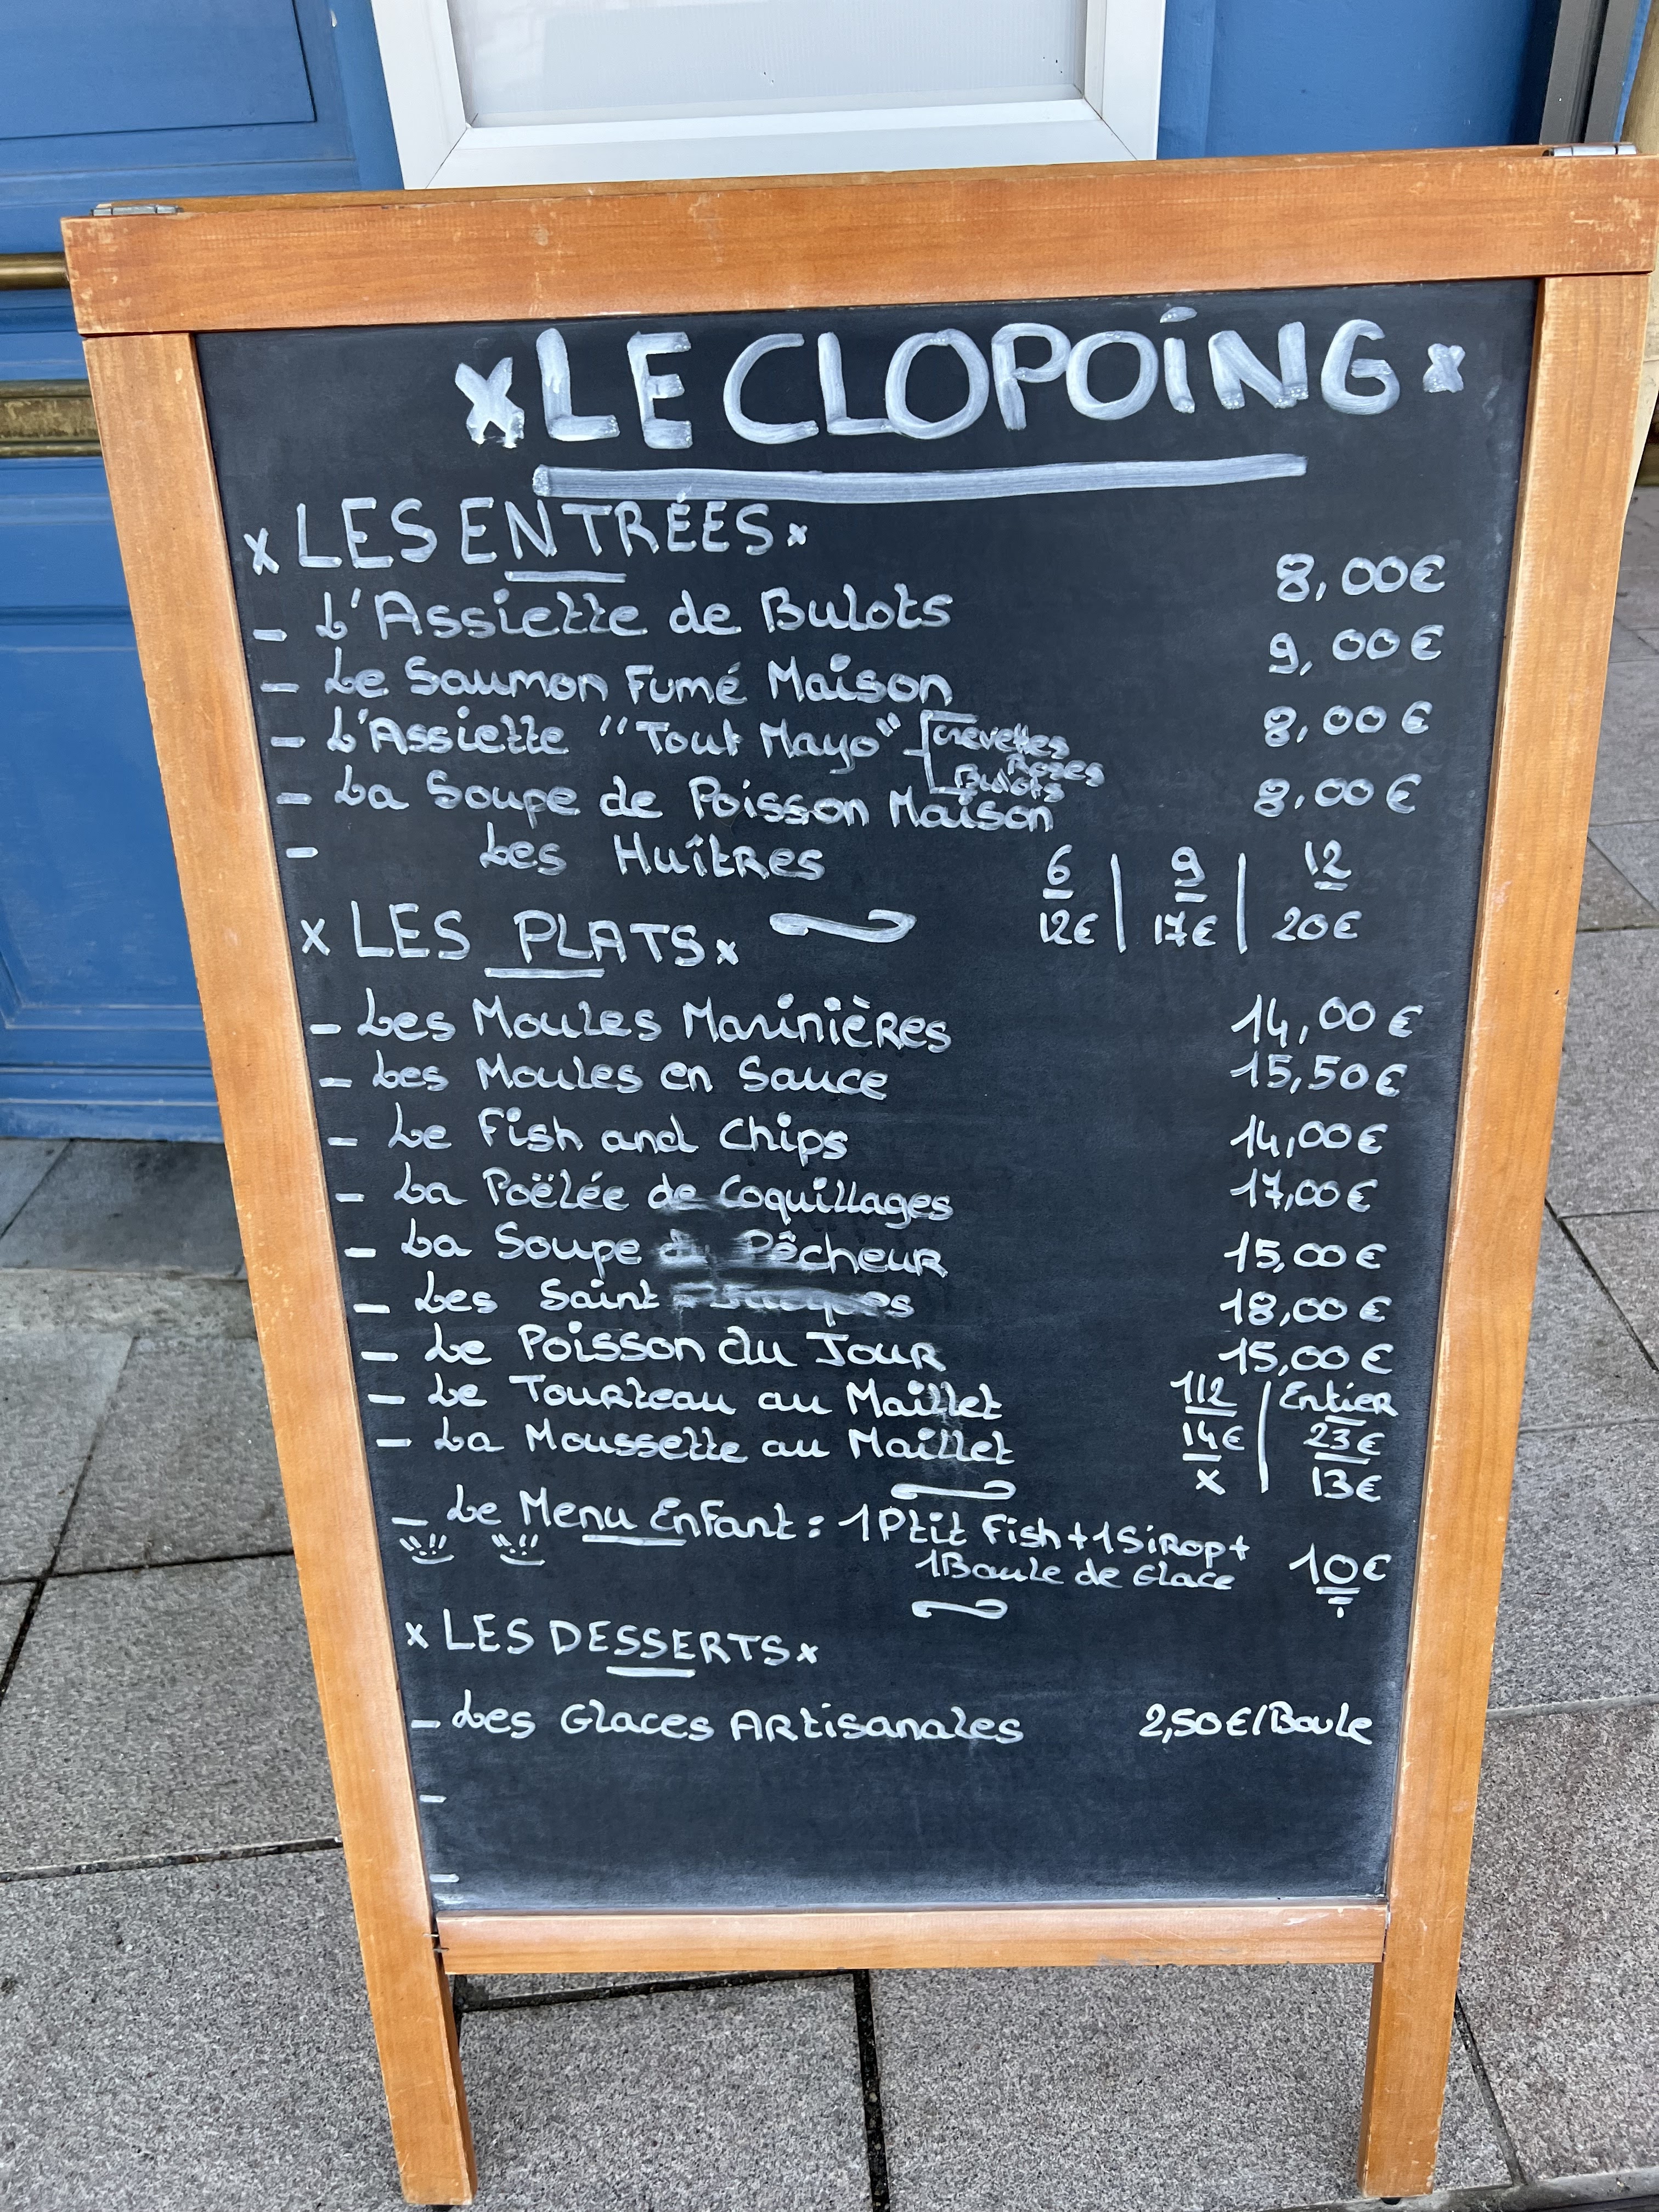 x LE CLOPOiNG x
x LES ENTRÉES x
- L'Assiette de Bulots 8,00€
- Le Saumon Fumé Maison 9,00€
- L'Assiette "Tout Mayo" Crevettes Roses Bulots 8,00€
- La Soupe de Poisson Maison 8,00€
- Les Huîtres 6 | 9 | 12
12€ | 17€ | 20€
x LES PLATS x
- Les Moules Marinières 14,00€
- Les Moules en Sauce 15,50€
- Le Fish and Chips 14,00€
- La Poëlée de Coquillages 17,00€
- La Soupe du Pêcheur 15,00€
- Les Saint Jacques 18,00€
- Le Poisson du Jour 15,00€
- Le Tourteau au Maillet 1/2 | Entier
14€ | 23€
- La Moussette au Maillet x | 13€
- Le Menu Enfant : 1 Ptit Fish + 1 Sirop +
1 Boule de Glace 10€
x LES DESSERTS x
- Les Glaces Artisanales 2,50€/Boule